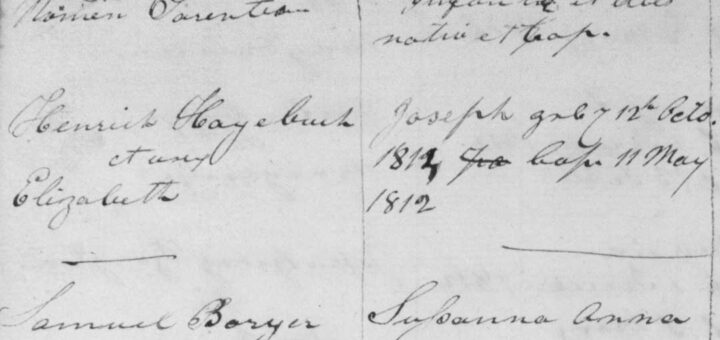 Nomen Parentum
et dies
nativ et bap.
Henrich Hagebuch
et uxy
Elizabeth
Joseph 12th Octo.
1812, bap 11 May
1812
Samuel Boryer
Susanna Anna